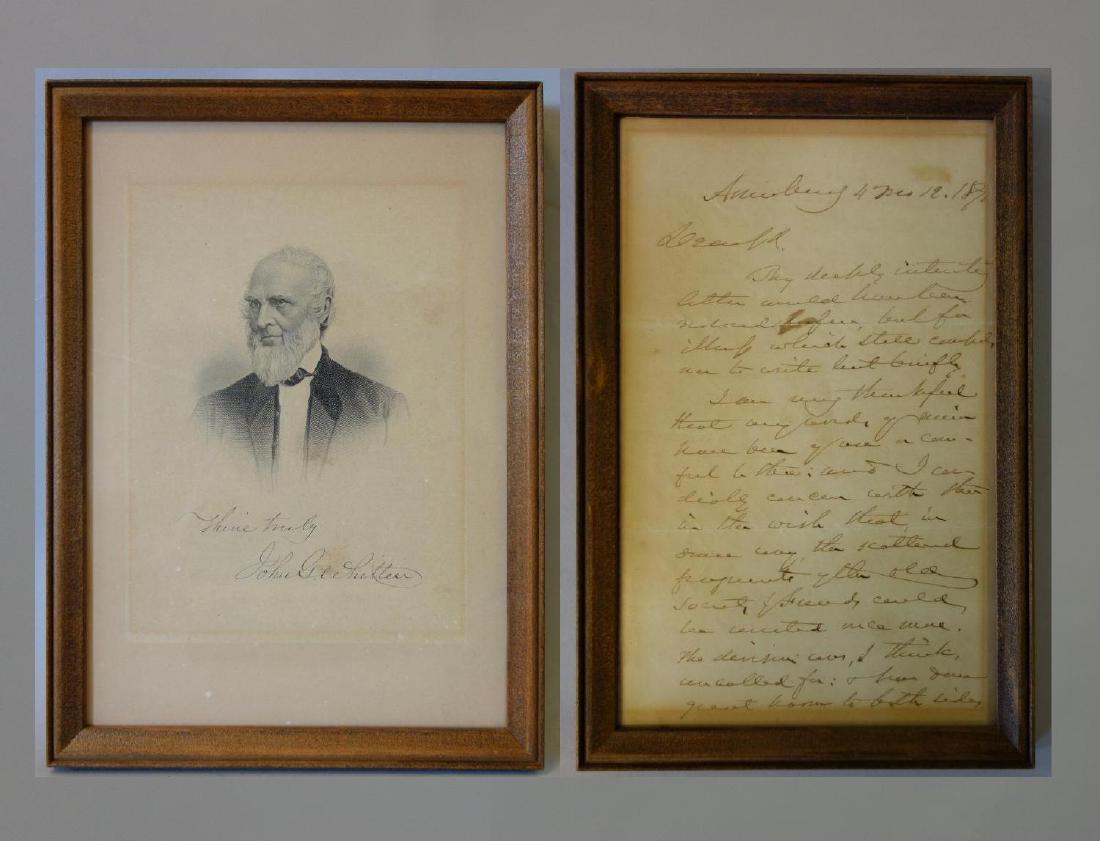 Thine truly
John G. Whittier
Amesbury 4 mo 12. 187
Dear fd.
Thy deeply interesting
letter would have been
noticed before, but for
illness which still compels
me to write but briefly
I am very thankful
that any words of mine
have been of use or com-
fort to thee: and I can
deeply concur with thee
in the wish that, in
some way, the scattered
fragments of the old
Society of Friends could
be united once more.
The division was, I think,
uncalled for: & has done
great harm to both sides